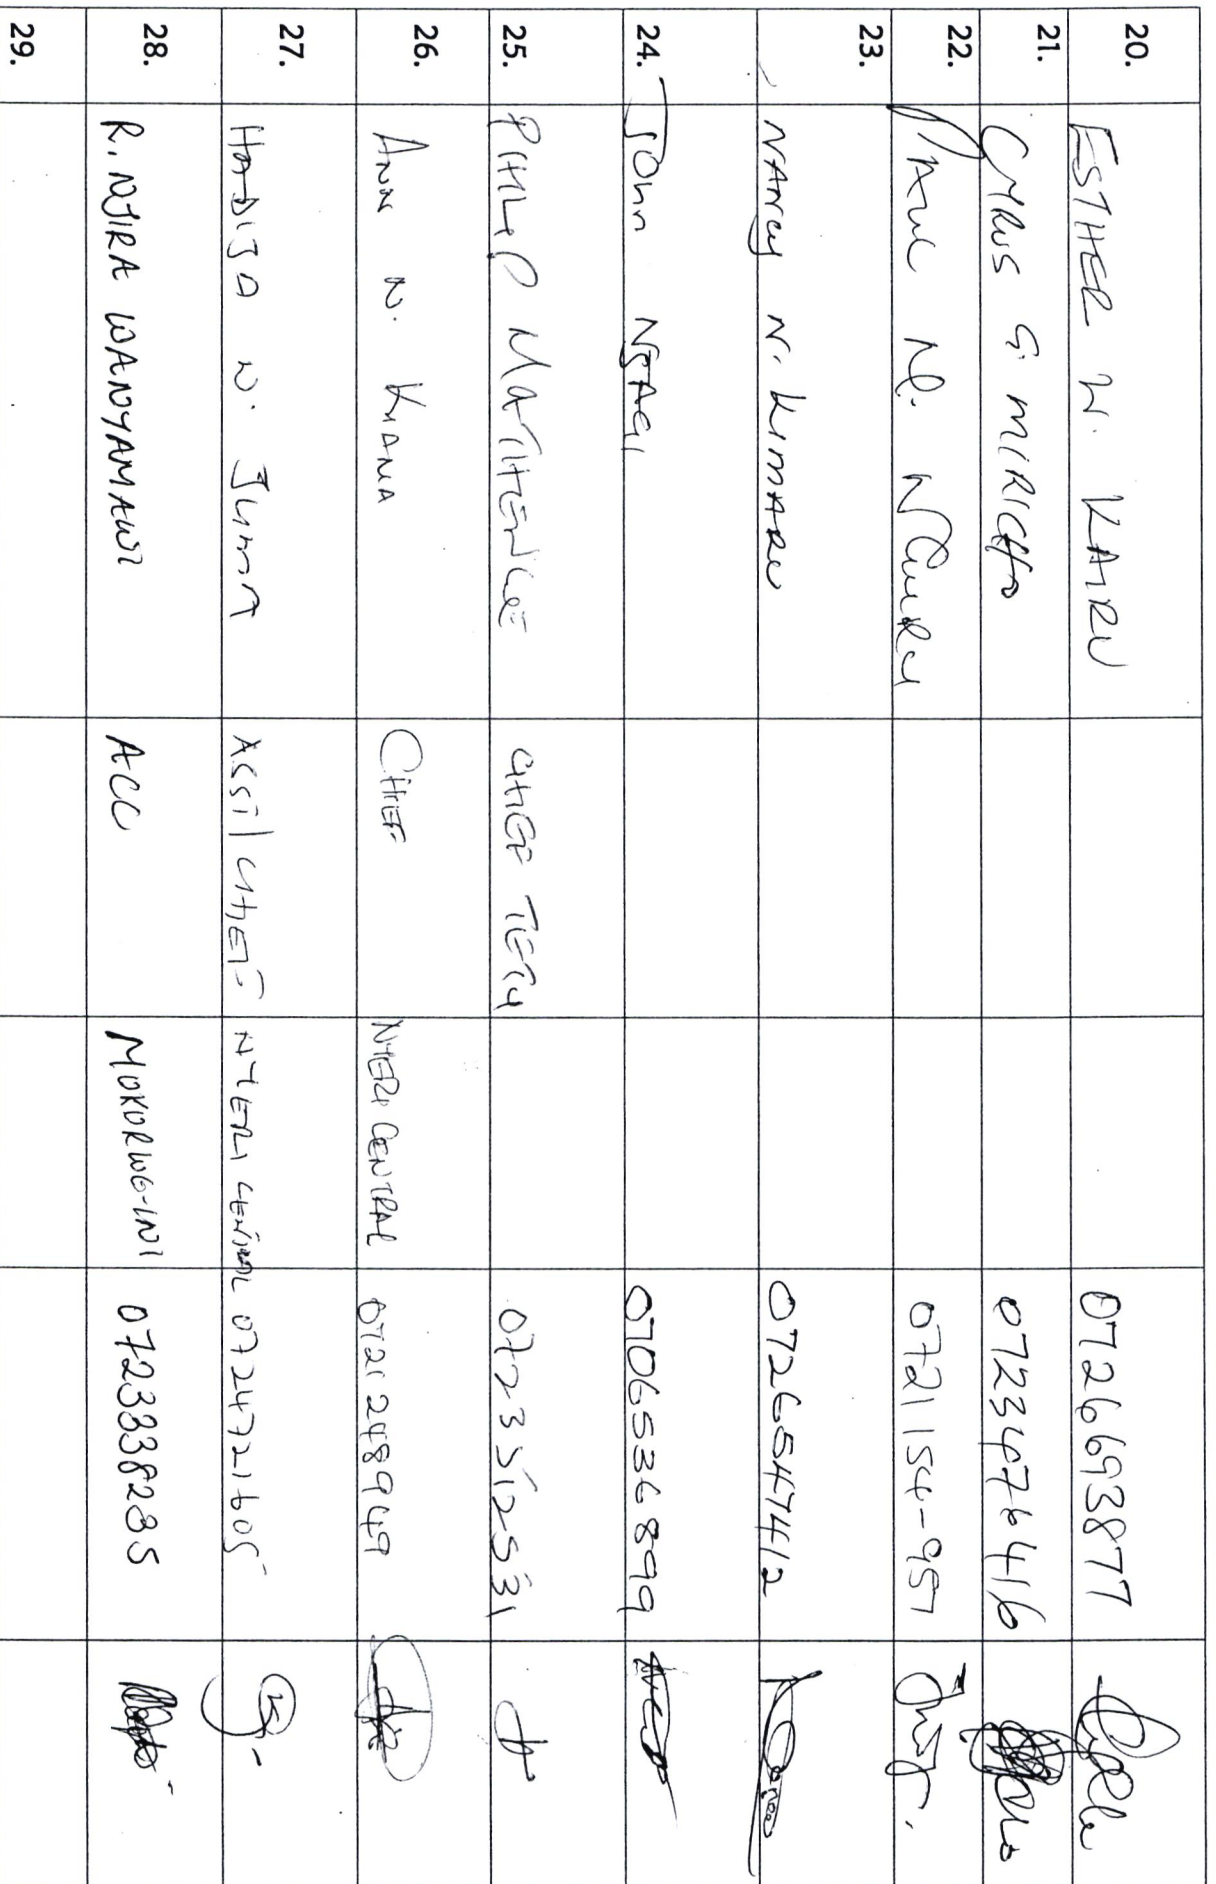 20. ESTHER W. KAIRU 0726693877
21. CYRUS G. MIRICHO 0723476416
22. PAUL N. 0721154-957
23. NANCY N. KIMARU 0726547412
24. JOHN NJAGI 0706536899
25. PHILIP MATHENGE CHIEF TETU 0723512531
26. ANN N. KHAMA CHIEF NYERI CENTRAL 0721248949
27. HADIJA N. JUMA ASST/CHIEF NYERI CENTRAL 0724721605
28. R. NJIRA WANYAMAWI ACC MUKURWE-INI 0723338235
29.